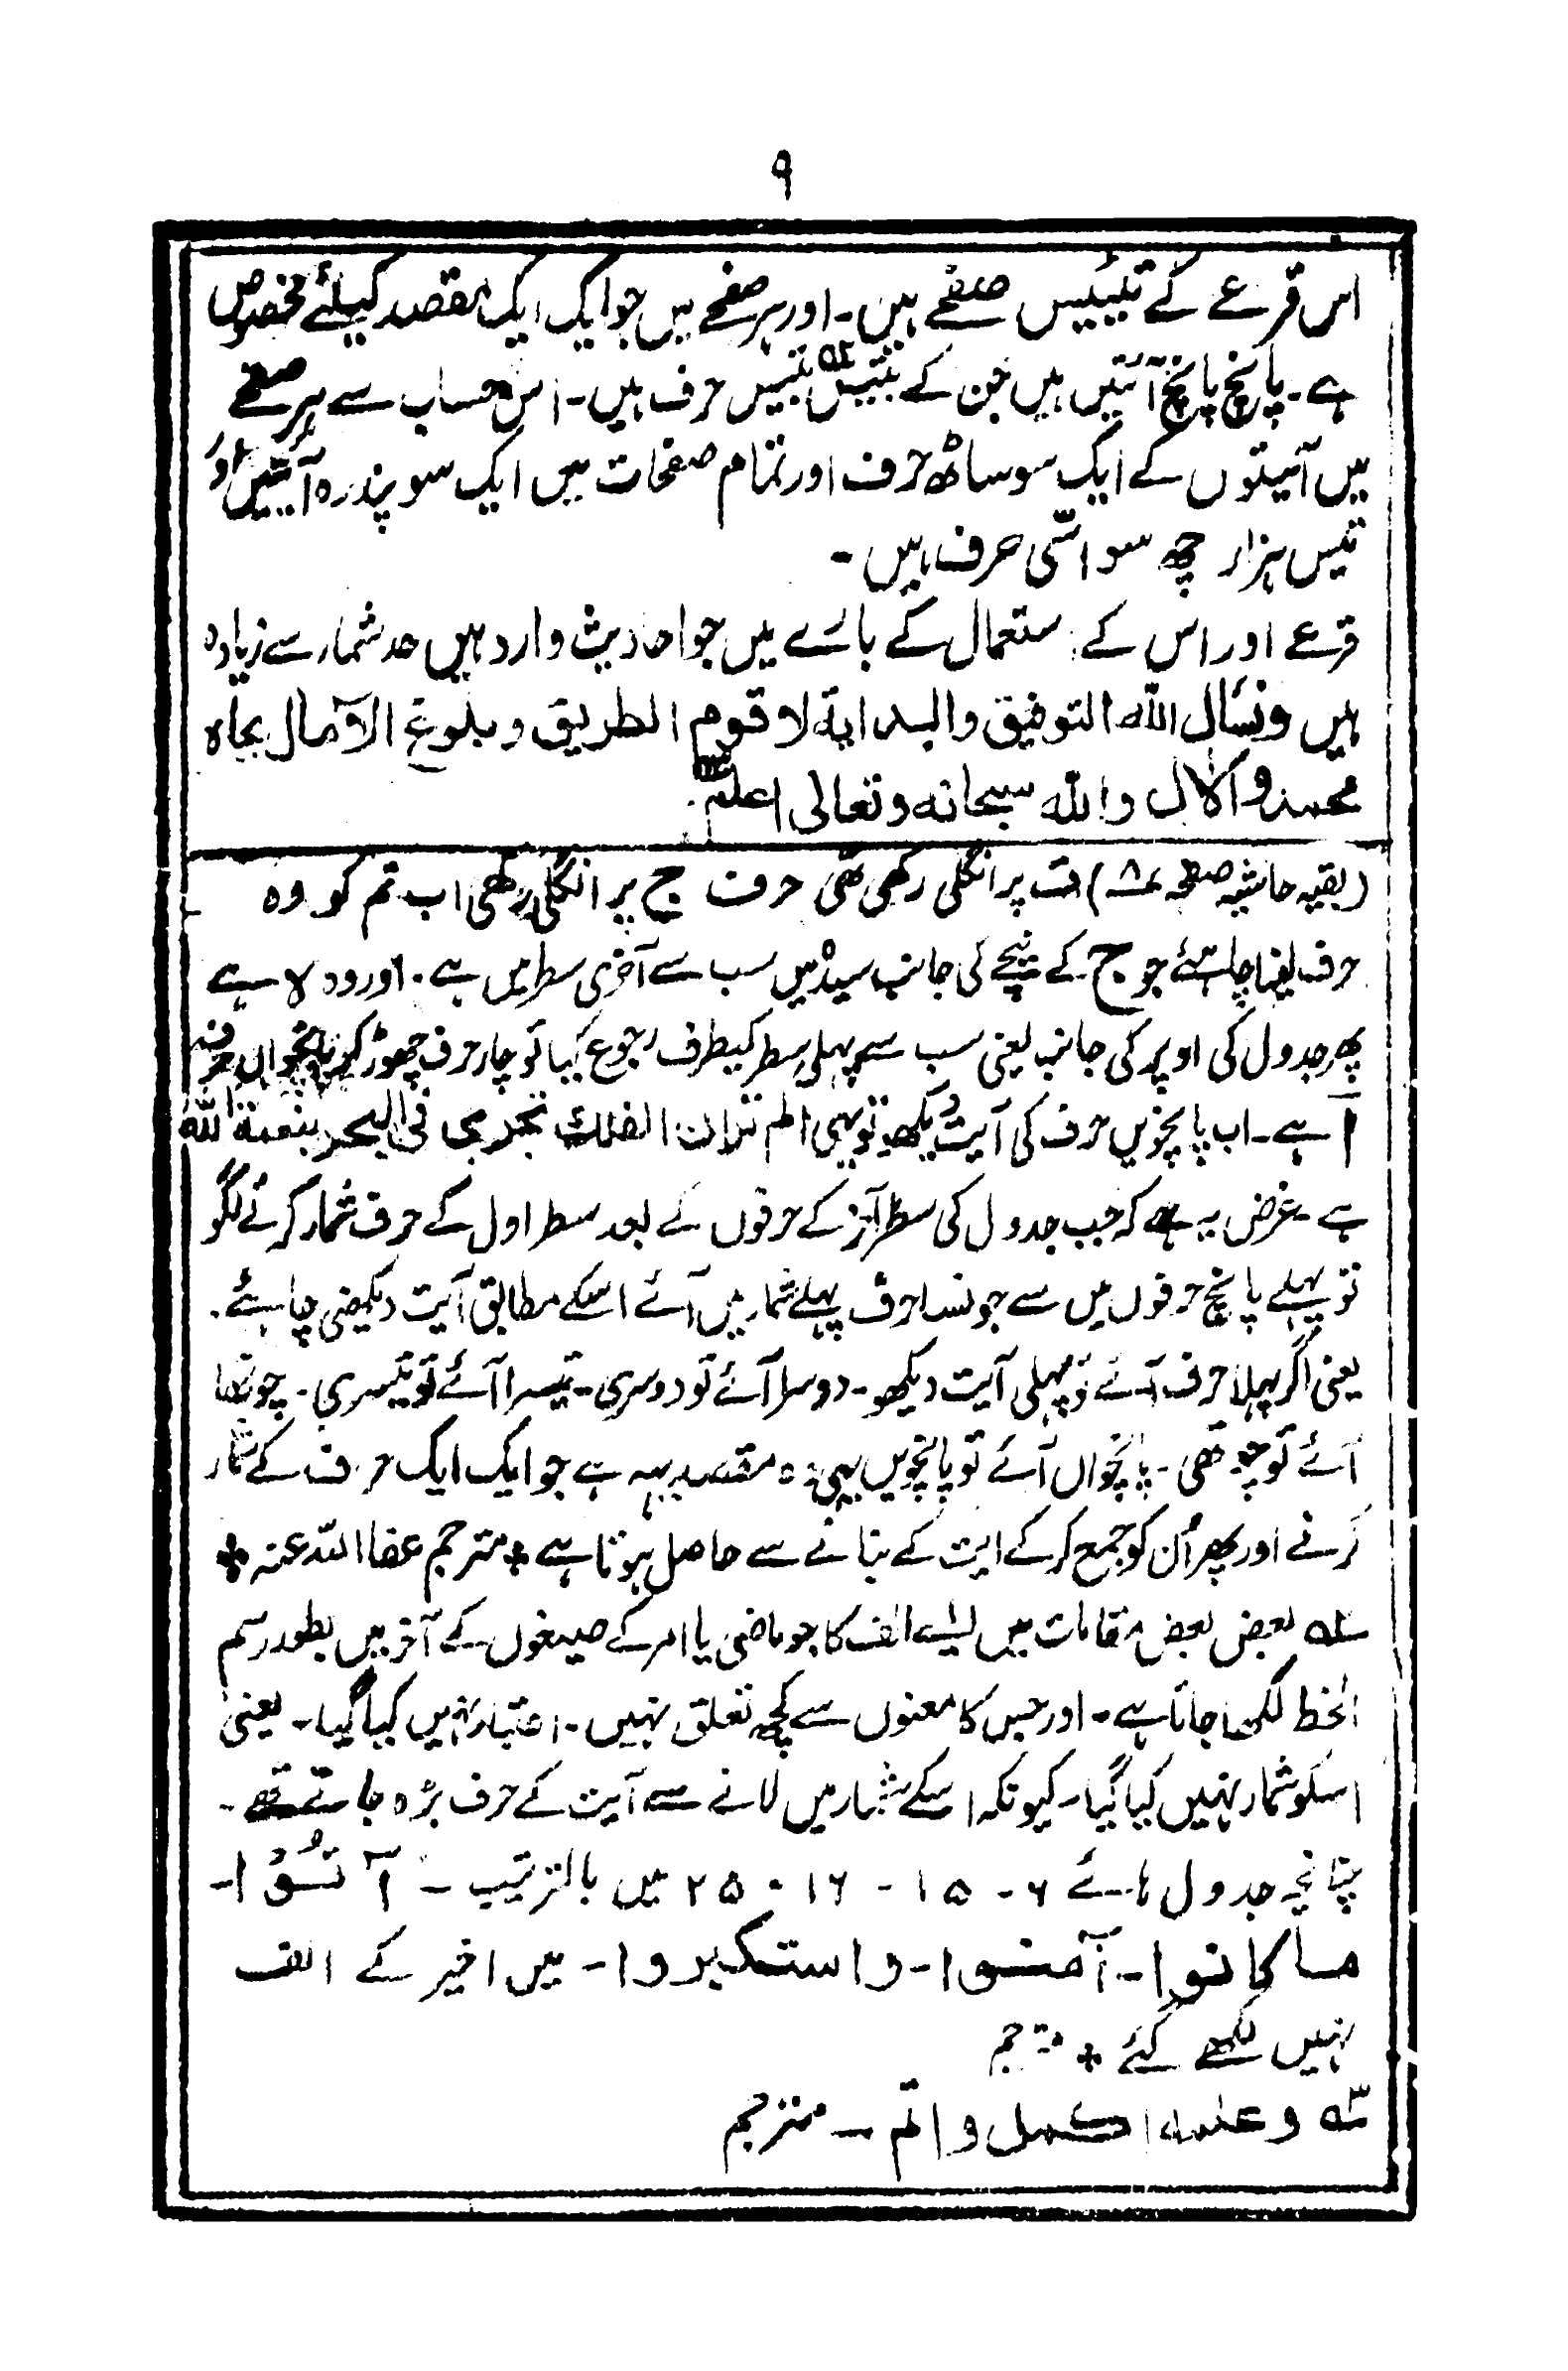 ۹
اس قرعے کے تیئیس صفحے ہیں۔ اور ہر صفحے میں جو ایک ایک مقصد کیلئے مخصوص
ہے۔ پانچ پانچ آئتیں ہیں جن کے بتیس بتیس حرف ہیں۔ اس حساب سے ہر صفحے
میں آئیتوں کے ایک سو ساٹھ حرف اور تمام صفحات میں ایک سو پندرہ آئتیں اور
تیس ہزار چھ سو اسّی حرف ہیں۔
قرعے اور اس کے ستعمال کے بارے میں جو احادیث وارد ہیں حد شمار سے زیادہ
ہیں ونسأل الله التوفیق والہدایۃ لاقوم الطریق وبلوغ الآمال بجاہ
محمد و الآل واللہ سبحانہ وتعالی اعلم ۲؎
(بقیہ حاشیہ صفحہ ۸) ت پر انگلی رکھی تھی حرف ج پر انگلی رکھی اب تم کو وہ
حرف لینا چاہئے جو ج کے نیچے کی جانب سیدھ میں سب سے آخری سطر میں ہے۔ اور وہ لا ہے
پھر جدول کی اوپر کی جانب یعنی سب سے پہلی سطر کیطرف رجوع کیا تو چار حرف چھوڑ کر پانچواں حرف
آ ہے۔ اب پانچویں حرف کی آیت دیکھو تو یہی الم تر ان الفلک تجری فی البحر بنعمۃ اللہ
ہے۔ غرض یہ ہے کہ جب جدول کی سطر آخر کے حرفوں کے بعد سطر اول کے حرف شمار کرنے لگو
تو پہلے پانچ حرفوں میں سے جونسا حرف پہلے شمار میں آئے اسکے مطابق آیت دیکھنی چاہئے۔
یعنی اگر پہلا حرف آئے تو پہلی آیت دیکھو۔ دوسرا آئے تو دوسری۔ تیسرا آئے تو تیسری۔ چوتھا
آئے تو چوتھی۔ پانچواں آئے تو پانچویں یہی وہ مقصد ہے جو ایک ایک حرف کے شمار
کرنے اور پھر اُن کو جمع کر کے ایت کے بنانے سے حاصل ہوتا ہے * مترجم عفا اللہ عنہ *
۱؎ بعض بعض مقامات میں ایسے الف کا جو ماضی یا امر کے صیغوں کے آخر میں بطور رسم
الخط لکھا جاتا ہے۔ اور جس کا معنوں سے کچھ تعلق نہیں۔ اعتبار نہیں کیا گیا۔ یعنی
اسکو شمار نہیں کیا گیا۔ کیونکہ اسکے شمار میں لانے سے آیت کے حرف بڑہ جاتے تھے۔
چنانچہ جدول ہائے ۶ - ۱۵ - ۱۶ - ۲۵ میں بالترتیب ۔ آتُوْا۔
ماکانوا۔ آمنوا۔ واستکبروا۔ میں اخیر کے الف
نہیں لکھے گئے * مترجم
۲؎ وعلمہ اکمل واتم ۔ مترجم